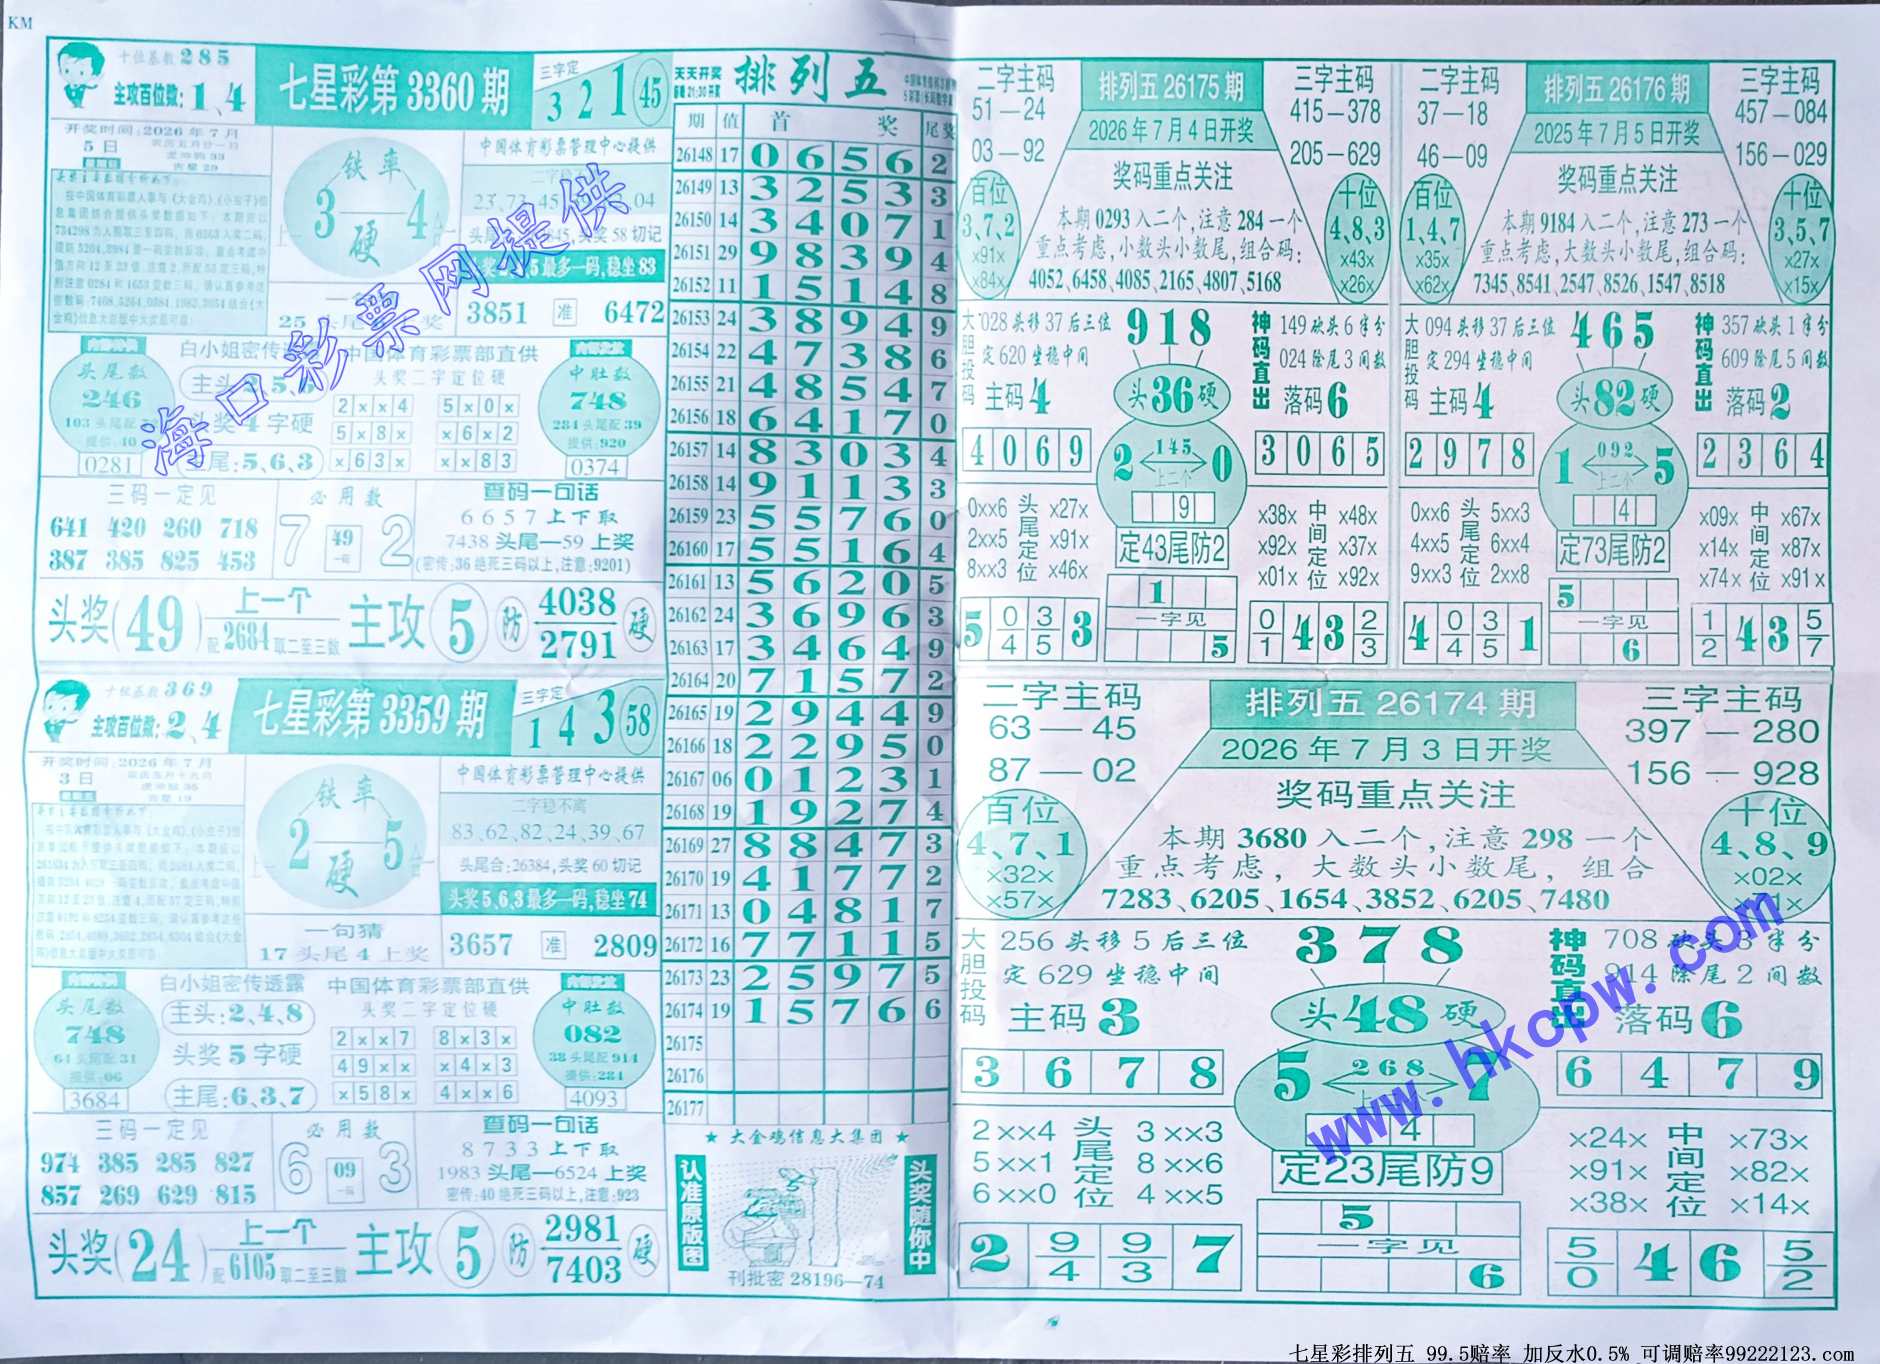 KM
十位基数 2 8 5
主攻百位数: 1、4
七星彩第 3360 期
三字定
3 2 1 45
开奖时间:2026 年 7 月
5 日
铁 率
3 — 4
硬
中国体育彩票管理中心提供
头奖 58 切记
5最多一码,稳坐 83
3851 准 6472
白小姐密传透 中国体育彩票部直供
头奖二字定位硬
头尾数
246
103 头尾配
提供: 10
0281
头奖 4 字硬
主尾: 5、6、3
2 x x 4 5 x 0 x
5 x 8 x x 6 x 2
x 6 3 x x x 8 3
中肚数
748
284 头尾配 39
提供: 920
0374
三码一定见
641 420 260 718
387 385 825 453
必 用 数
7 49 2
查码一句话
6 6 5 7 上下取
7438 头尾—59 上奖
(密传:36 绝死三码以上,注意:9201)
头奖(49) 上一个
配 2684 取二至三数
主攻 5 防 4038
2791 硬
十位基数 3 6 9
主攻百位数: 2、4
七星彩第 3359 期
三字定
1 4 3 58
开奖时间:2026 年 7 月
3 日
铁 率
2 — 5
硬
中国体育彩票管理中心提供
二字稳不离
83、62、82、24、39、67
头尾合:26384,头奖 60 切记
头奖 5、6、3 最多一码,稳坐 74
一句猜
17 头尾 4 上奖
3657 准 2809
白小姐密传透露 中国体育彩票部直供
头奖二字定位硬
头尾数
748
64 头尾配 31
提供: 06
3684
主头: 2、4、8
头奖 5 字硬
主尾: 6、3、7
2 x x 7 8 x 3 x
4 9 x x x 4 x 3
x 5 8 x 4 x x 6
中肚数
082
38 头尾配 914
提供: 284
4093
三码一定见
974 385 285 827
857 269 629 815
必 用 数
6 09 3
查码一句话
8 7 3 3 上下取
1983 头尾—6524 上奖
密传:40 绝死三码以上,注意:923
头奖(24) 上一个
配 6105 取二至三数
主攻 5 防 2981
7403 硬
天天开奖
排列五
期 值 首 奖 尾奖
26148 17 0 6 5 6 2
26149 13 3 2 5 3 3
26150 14 3 4 0 7 1
26151 29 9 8 3 9 4
26152 11 1 5 1 4 8
26153 24 3 8 9 4 9
26154 22 4 7 3 8 6
26155 21 4 8 5 4 7
26156 18 6 4 1 7 0
26157 14 8 3 0 3 4
26158 14 9 1 1 3 3
26159 23 5 5 7 6 0
26160 17 5 5 1 6 4
26161 13 5 6 2 0 5
26162 24 3 6 9 6 3
26163 17 3 4 6 4 9
26164 20 7 1 5 7 2
26165 19 2 9 4 4 9
26166 18 2 2 9 5 0
26167 06 0 1 2 3 1
26168 19 1 9 2 7 4
26169 27 8 8 4 7 3
26170 19 4 1 7 7 2
26171 13 0 4 8 1 7
26172 16 7 7 1 1 5
26173 23 2 5 9 7 5
26174 19 1 5 7 6 6
26175
26176
26177
★ 大金鸡信息大集团 ★
认准原版图
头奖随你中
刊批密 28196—74
二字主码
51—24
03—92
排列五 26175 期
2026 年 7 月 4 日开奖
三字主码
415—378
205—629
奖码重点关注
百位
3、7、2
×91×
×84×
本期 0293 入二个,注意 284 一个
重点考虑,小数头小数尾,组合码:
4052、6458、4085、2165、4807、5168
十位
4、8、3
×43×
×26×
大胆投码
028 头移 37 后三位
定 620 坐稳中间
主码 4
918
头 36 硬
神码直出
149 砍头 6 半分
024 除尾 3 间数
落码 6
4 0 6 9
2 145 0
上二个
9
3 0 6 5
0xx6 头 x27x
2xx5 尾定 x91x
8xx3 位 x46x
定43尾防2
x38x 中 x48x
x92x 间定 x37x
x01x 位 x92x
5 0/4 3/5 3
1
一字见
5
0/1 4 3 2/3
二字主码
37—18
46—09
排列五 26176 期
2025 年 7 月 5 日开奖
三字主码
457—084
156—029
奖码重点关注
百位
1、4、7
×35×
×62×
本期 9184 入二个,注意 273 一个
重点考虑,大数头小数尾,组合码:
7345、8541、2547、8526、1547、8518
十位
3、5、7
×27×
×15×
大胆投码
094 头移 37 后三位
定 294 坐稳中间
主码 4
465
头 82 硬
神码直出
357 砍头 1 半分
609 除尾 5 间数
落码 2
2 9 7 8
1 092 5
上二个
4
2 3 6 4
0xx6 头 5xx3
4xx5 尾定 6xx4
9xx3 位 2xx8
定73尾防2
x09x 中 x67x
x14x 间定 x87x
x74x 位 x91x
4 0/4 3/5 1
5
一字见
6
1/2 4 3 5/7
二字主码
63—45
87—02
排列五 26174 期
2026 年 7 月 3 日开奖
三字主码
397—280
156—928
奖码重点关注
百位
4、7、1
×32×
×57×
本期 3680 入二个,注意 298 一个
重点考虑,大数头小数尾,组合
7283、6205、1654、3852、6205、7480
十位
4、8、9
×02×
大胆投码
256 头移 5 后三位
定 629 坐稳中间
主码 3
378
头 48 硬
神码直出
708 砍头 3 半分
914 除尾 2 间数
落码 6
3 6 7 8
5 268 7
4
6 4 7 9
2××4 头 3××3
5××1 尾定 8××6
6××0 位 4××5
定23尾防9
×24× 中 ×73×
×91× 间定 ×82×
×38× 位 ×14×
2 9/4 9/3 7
5
一字见
6
5/0 4 6 5/2
海口彩票网提供
www.hkcpw.com
七星彩排列五 99.5赔率 加反水0.5% 可调赔率99222123.com